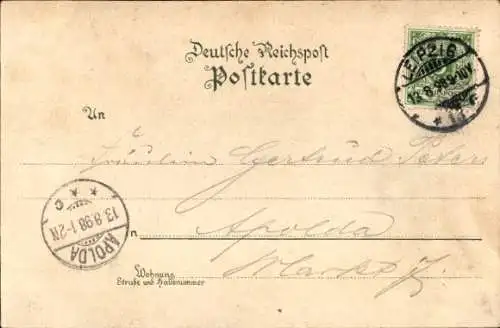 Deutsche Reichspost
Postkarte
LEIPZIG
13.8.98
An
Fräulein Gertrud Peters
in Apolda
Markt 7.
APOLDA
13.8.98.1-2N
C
Wohnung
Straße und Hausnummer